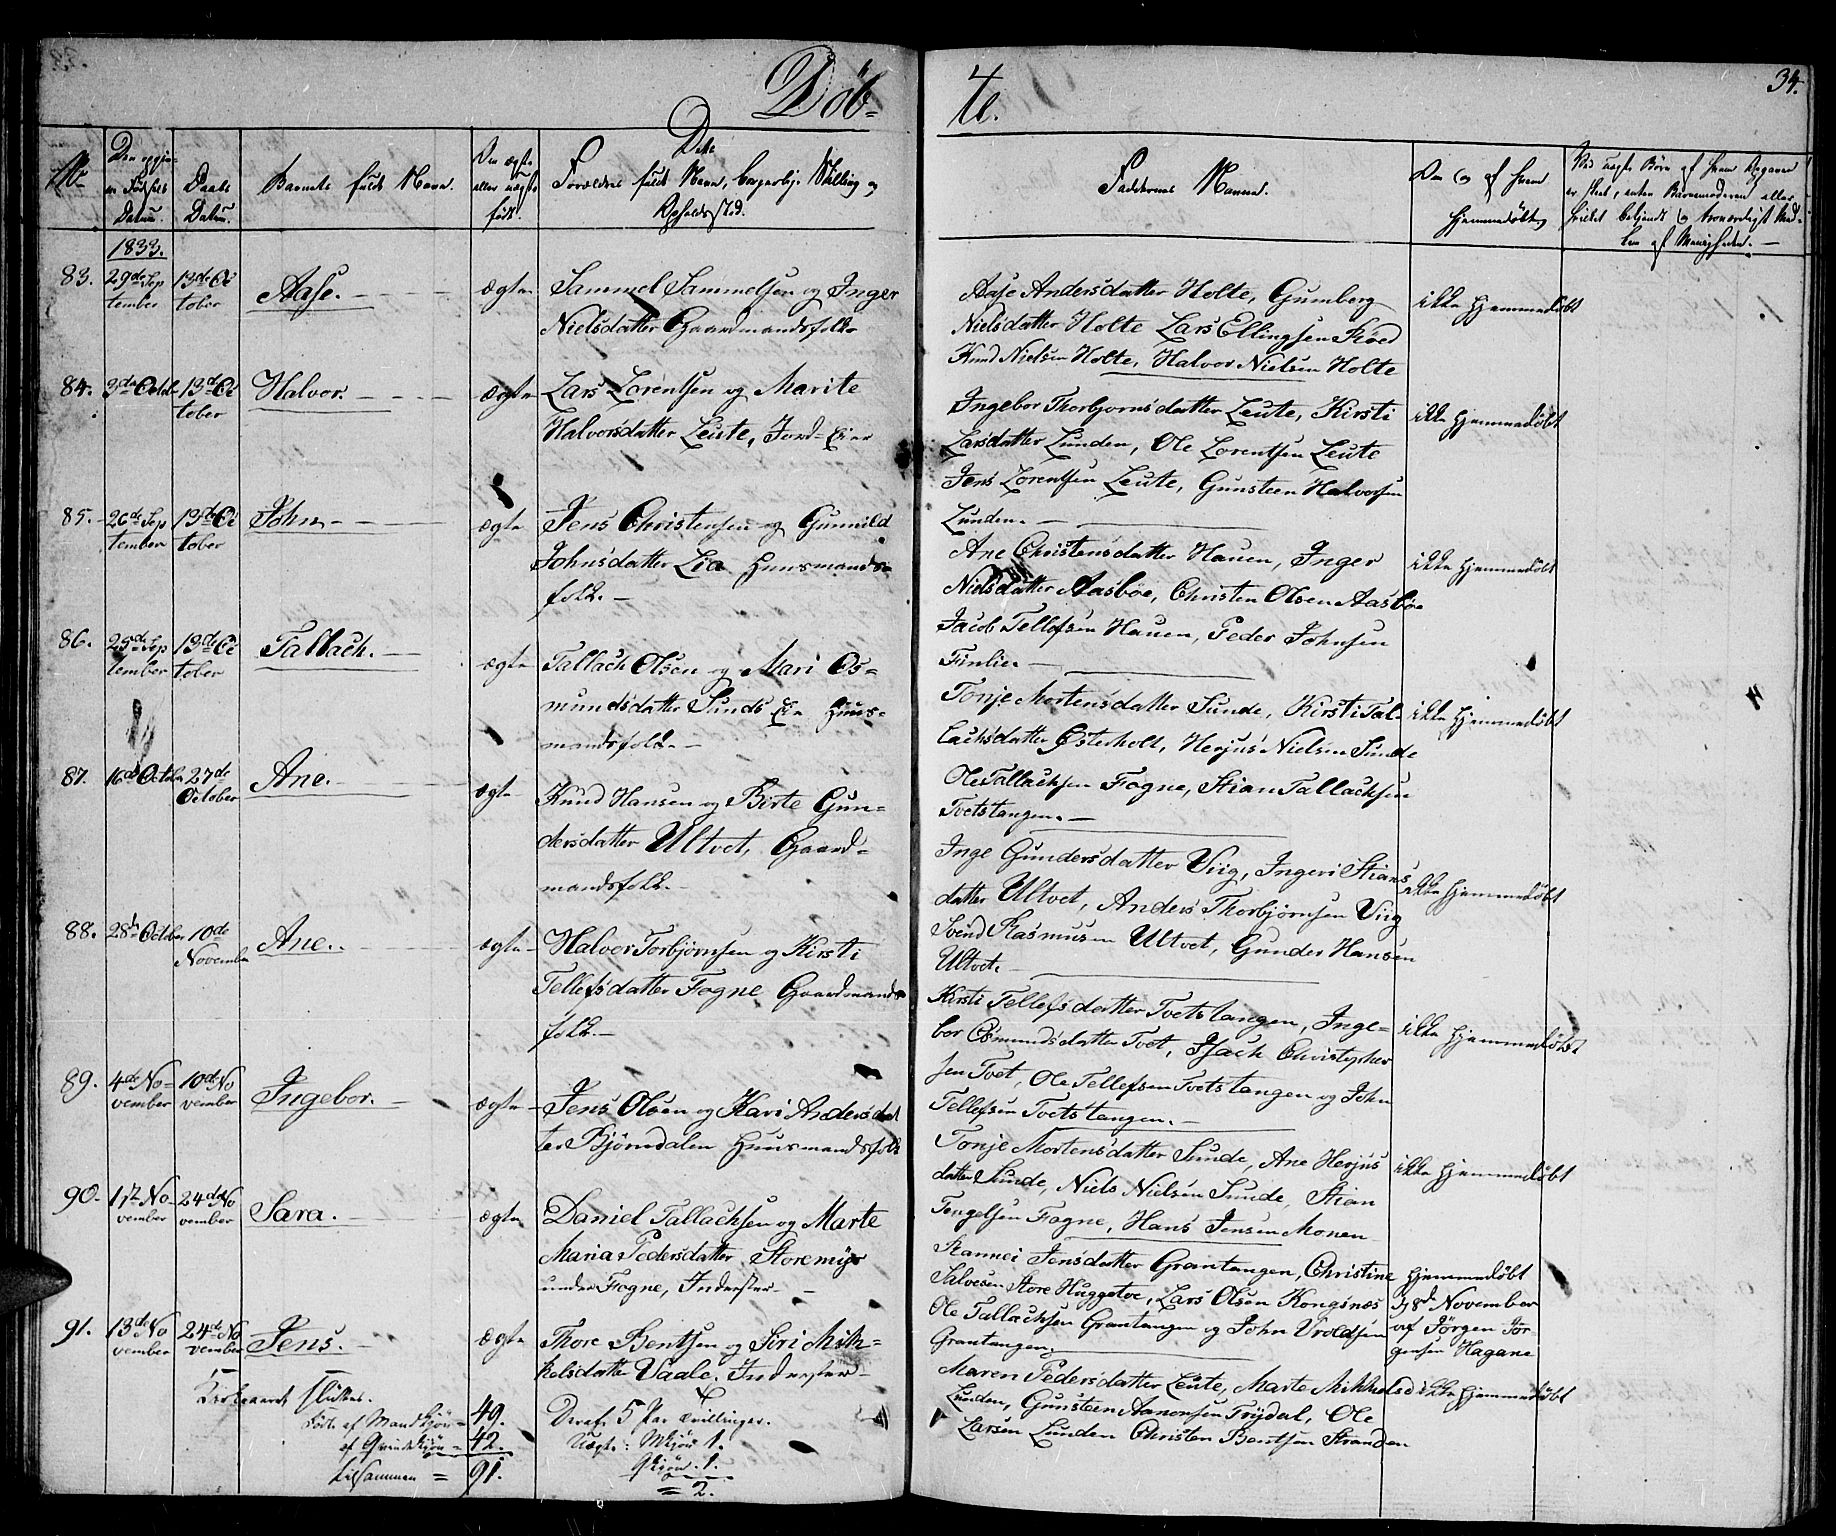 Döb-
te.
34.
No
Den opgiv-
ne Födsels
Datum.
Daabs
Datum.
Barnets fulde Navn.
Om ægte
eller uægte
födt.
Dets
Forældres fulde Navn, borgerlige Stilling og
Opholdssted.
Faddernes Navne.
Om og af hvem
hjemmedöbt
Ved uægte Börn af hvem Opgaven
er skeet, enten Barnemoderen eller
hvilket bekjendt og troværdigt Med-
lem af Menigheden.
1833.
83. 29de Sep
tember
13de Oc
tober
Aase.
ægte
Sammel Sammelsen og Inger
Nielsdatter Gaardmandsfolk
Aase Andersdatter Holte, Gumborg
Nielsdatter Holte Lars Ellingsen Röed
Knud Nielsen Holte, Halvor Nielsen Holte
ikke hjemmedöbt
84. 3de Octob 13de Oc
tober
Halvor.
ægte
Lars Lorentsen og Marite
Halvorsdatter Leute, Jord-Eier
Ingebor Thorbjornsdatter Leute, Kirsti
Larsdatter Lunden, Ole Lorentsen Leute
Jens Lorentsen Leute, Gunsteen Halvorsen
Lunden.
ikke hjemmedöbt
85. 26de Sep
tember
13de Oc
tober
John
ægte
Jens Christensen og Gunnild
Johnsdatter Lia Huusmands-
folk.
Ane Christensdatter Hauen, Inger
Nielsdatter Aasböe, Christen Olsen Aasböe
Jacob Tellefsen Hauen, Peder Johnsen
Finlie.
ikke hjemmedöbt
86. 25de Sep
tember
13de Oc
tober
Tallach.
ægte
Tallach Olsen og Mari Os-
mundsdatter Sunds Eie Huus-
mandsfolk.
Tonje Mortensdatter Sunde, Kirsti Tal-
lachsdatter Österholt, Herjus Nielsen Sunde
Ole Tallachsen Fogne, Stian Tallachsen
Tvetstangen.
ikke hjemmedöbt
87. 16de Octobr 27de
October
Ane.
ægte
Knud Hansen og Berte Gun-
dersdatter Ultvet, Gaard-
mandsfolk.
Inge Gundersdatter Viig, Ingeri Stians
datter Ultvet, Anders Thorbjörnsen Viig
Svend Rasmusen Ultvet, Gunder Hansen
Ultvet.
ikke hjemmedöbt
88. 28de October 10de
Novembr
Ane.
ægte
Halvor Torbjörnsen og Kirsti
Tellefsdatter Fogne Gaardmands
folk.
Kirsti Tellefsdatter Tvetstangen, Inge-
bor Osmundsdatter Tvet, Isach Christopher
sen Tvet, Ole Tellefsen Tvetstangen og John
Tellefsen Tvetstangen.
ikke hjemmedöbt
89. 4de No-
vember
10de No
vember
Ingebor.
ægte
Jens Olsen og Kari Andersdat
ter Björndalen Huusmandsfolk
Tonje Mortensdatter Sunde, Ane Herjus
datter Sunde, Niels Nielsen Sunde, Stian
Tengelsen Fogne, Hans Jensen Monen
ikke hjemmedöbt
90. No-
vember
24de No
vember
Sara.
ægte
Daniel Tallachsen og Marte
Maria Pedersdatter Storemyr
under Fogne, Inderster
Rannei Jensdatter Grantangen, Christine
Salvesen Store Huggetoe, Lars Olsen Kongsnæs
Ole Tallachsen Grantangen og John Vroldsen
Grantangen.
hjemmedöbt
November
af Jörgen Jör
gensen Hagane
91. 13de No
vember
24de No
vember
Jens.
ægte
Thore Bentsen og Siri Mik-
kelsdatter Vaale. Inderster
Maren Pedersdatter Leute, Marte Mikkelsd
Lunden, Gunsteen Aanonsen Trydal, Ole
Larsen Lunden Christen Bentsen Stranden
ikke hjemmedöbt
Kirkeaaret sluttes.
Födte af Mandkjön 49.
af Qvindekjön 42.
tilsammen = 91.
Deraf 5 Par tvillinger.
Uægte: Mkjön 1.
Qkjön. 1.
= 2.